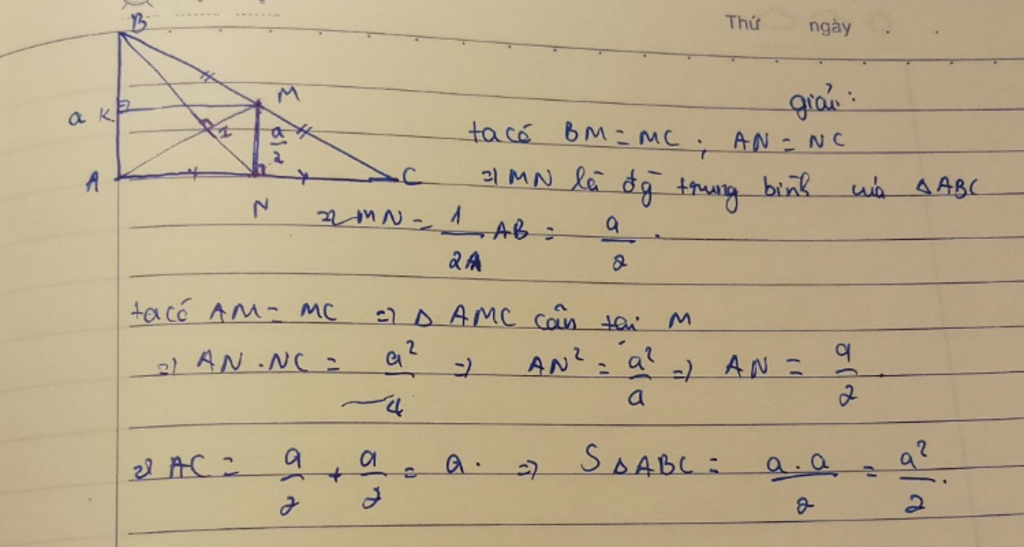 Thứ ngày
B
M
a K
I
a/2
A
C
N
giải:
ta có BM = MC ; AN = NC
=> MN là đg trung bình của △ABC
=> MN = 1/2 AB = a/2 .
ta có AM = MC => △ AMC cân tại M
=> AN . NC = a²/4 => AN² = a²/a => AN = a/2 .
=> AC = a/2 + a/2 = a . => S△ABC = a.a/2 = a²/2 .